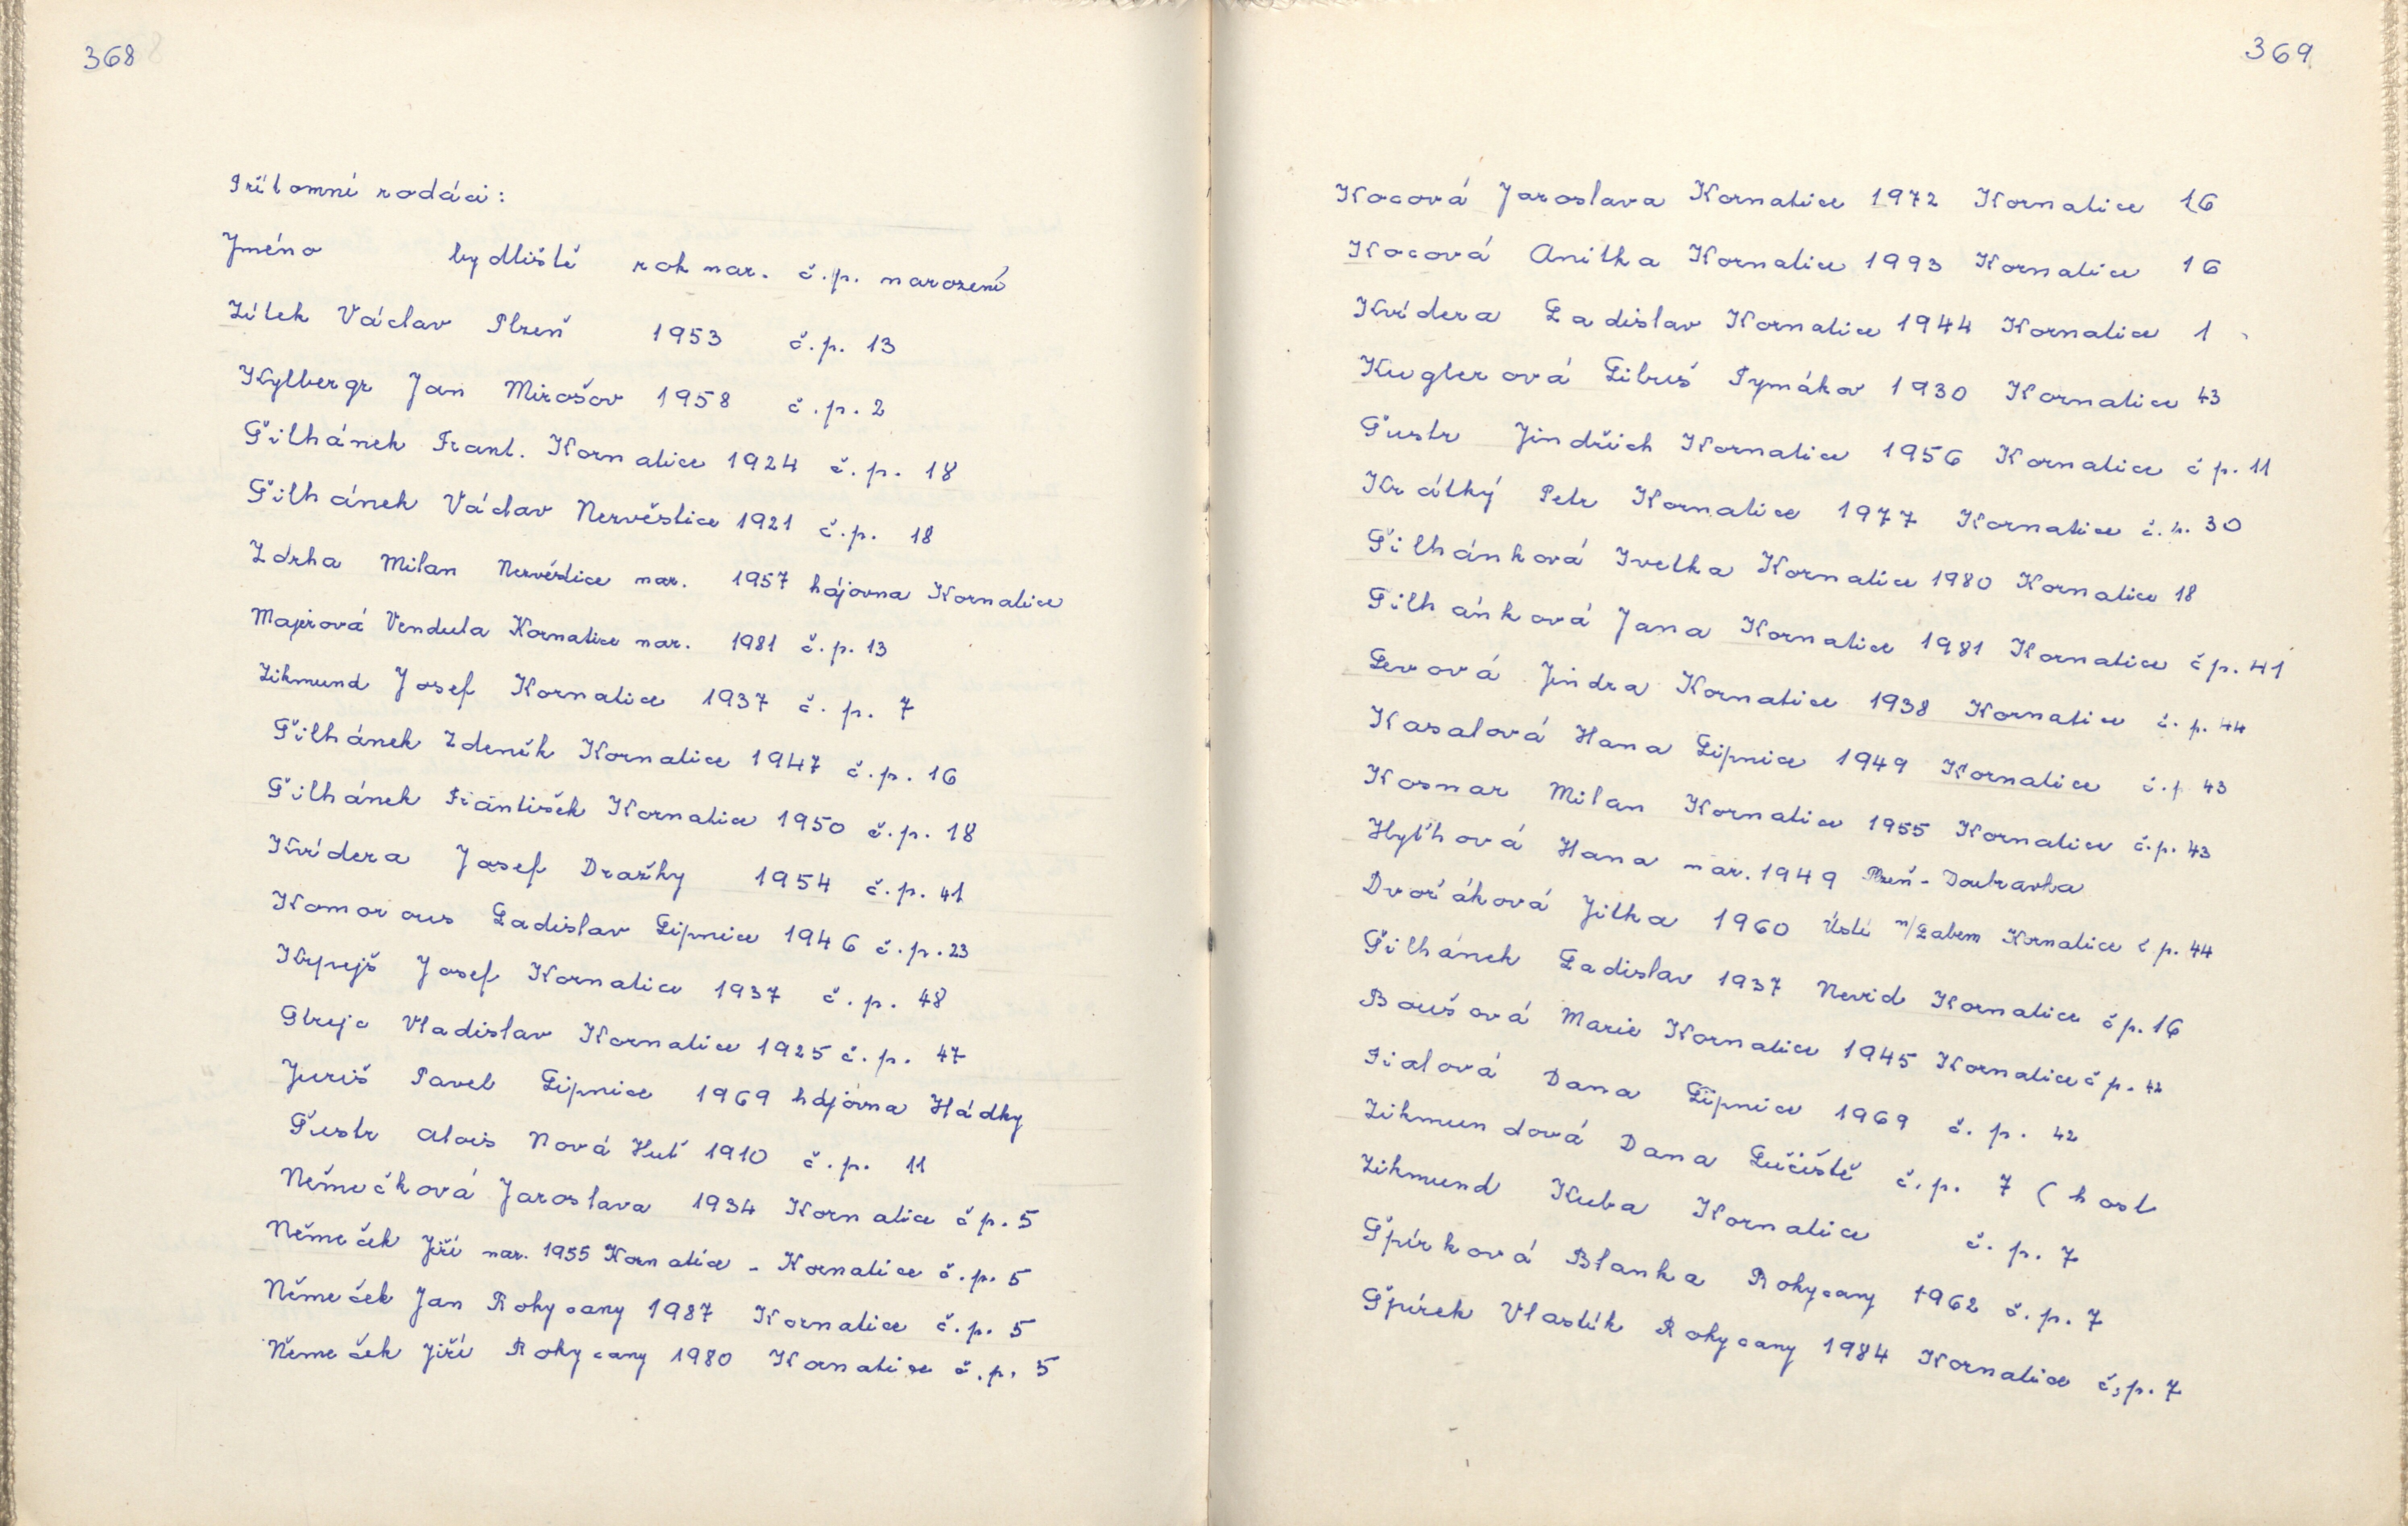 368
Přítomní rodáci:
Jméno bydliště rok nar. č.p. narození
Žítek Václav Plzeň 1953 č.p. 13
Kylbergr Jan Mirošov 1958 č.p. 2
Šilhánek Frant. Kornatice 1924 č.p. 18
Šilhánek Václav Nezvěstice 1921 č.p. 18
Zdrha Milan Nezvěstice nar. 1957 hájovna Kornatice
Majerová Vendula Kornatice nar. 1981 č.p. 13
Zikmund Josef Kornatice 1937 č.p. 7
Šilhánek Zdeněk Kornatice 1947 č.p. 16
Šilhánek František Kornatice 1950 č.p. 18
Kvídera Josef Dražky 1954 č.p. 41
Komorous Ladislav Lipnice 1946 č.p. 23
Josef Kornatice 1937 č.p. 48
Strejc Vladislav Kornatice 1925 č.p. 47
Juriš Pavel Lipnice 1969 hájovna Hádky
Šustr Alois Nová Huť 1910 č.p. 11
Němečková Jaroslava 1934 Kornatice č p. 5
Němeček Jiří nar. 1955 Kornatice - Kornatice č.p. 5
Němeček Jan Rokycany 1987 Kornatice č.p. 5
Němeček Jiří Rokycany 1980 Kornatice č.p. 5
369
Kocová Jaroslava Kornatice 1972 Kornatice 16
Kocová Anitka Kornatice 1993 Kornatice 16
Kvídera Ladislav Kornatice 1944 Kornatice 1
Kuglerová Libuš Tymákov 1930 Kornatice 43
Šustr Jindřich Kornatice 1956 Kornatice č p. 11
Krátký Petr Kornatice 1977 Kornatice č.p. 30
Šilhánková Ivetka Kornatice 1980 Kornatice 18
Šilhánková Jana Kornatice 1981 Kornatice č p. 41
Levová Jindra Kornatice 1938 Kornatice č. p. 44
Kasalová Hana Lipnice 1949 Kornatice č.p 43
Kosnar Milan Kornatice 1955 Kornatice č.p. 43
Hana nar. 1949 Plzeň - Doubravka
Dvořáková Jitka 1960 Ústí n/Labem Kornatice č p. 44
Šilhánek Ladislav 1937 Nevid Kornatice č p. 16
Boušová Marie Kornatice 1945 Kornatice č p. 42
Fialová Dana Lipnice 1969 č. p. 42
Zikmundová Dana Lučiště č.p. 7 ( host
Zikmund Kuba Kornatice č. p. 7
Špírková Blanka Rokycany 1962 č.p. 7
Špírek Vlastík Rokycany 1984 Kornatice č.p. 7